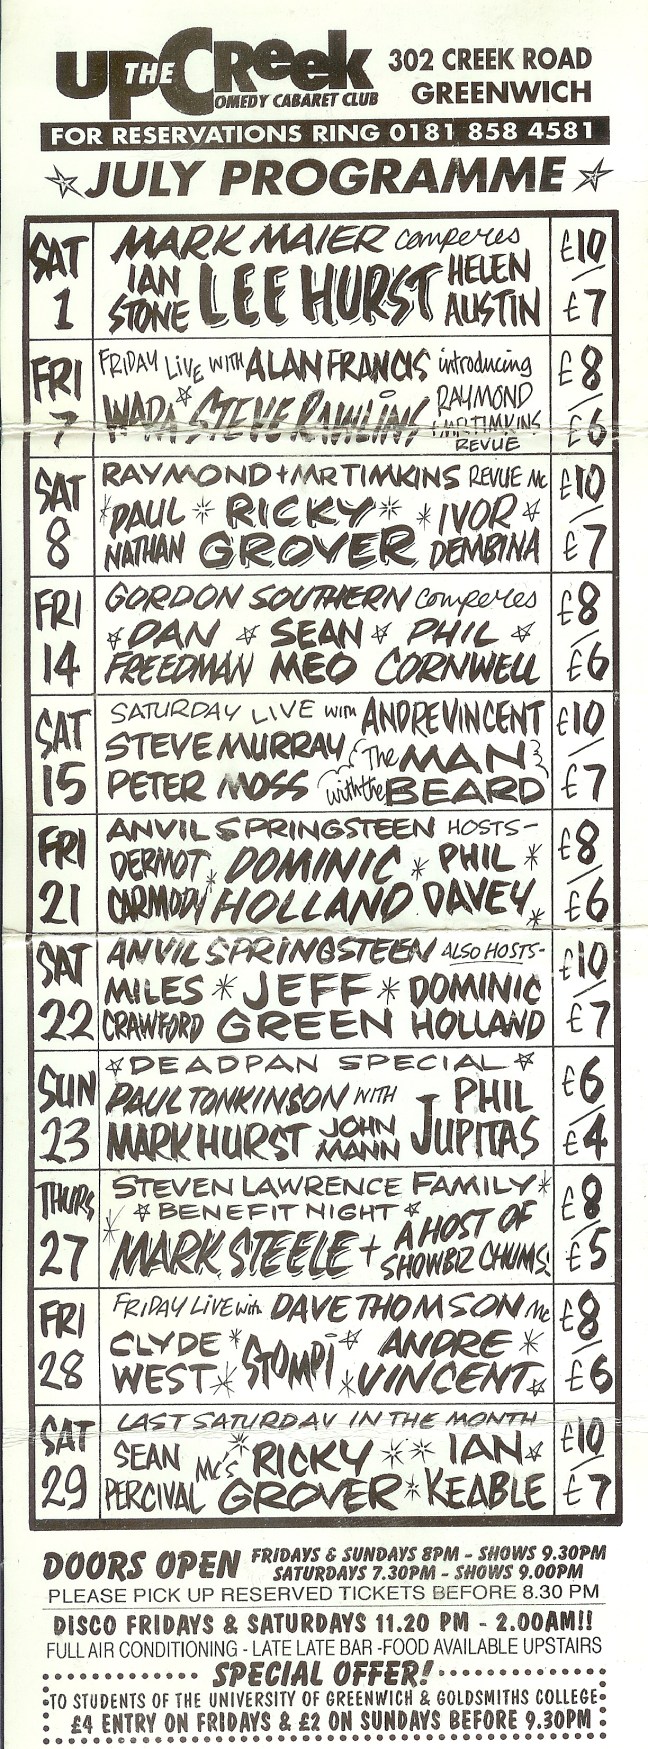 UP THE CREEK
COMEDY CABARET CLUB
302 CREEK ROAD
GREENWICH
FOR RESERVATIONS RING 0181 858 4581
JULY PROGRAMME
SAT 1
MARK MAIER comperes
IAN STONE LEE HURST HELEN AUSTIN
£10/£7
FRI 7
FRIDAY LIVE WITH ALAN FRANCIS introducing
WARA STEVE RAWLINS RAYMOND + MR TIMKINS REVUE
£8/£6
SAT 8
RAYMOND + MR TIMKINS REVUE Mc
PAUL NATHAN RICKY GROVER IVOR DEMBINA
£10/£7
FRI 14
GORDON SOUTHERN comperes
DAN FREEDMAN SEAN MEO PHIL CORNWELL
£8/£6
SAT 15
SATURDAY LIVE WITH ANDRE VINCENT
STEVE MURRAY The MAN
PETER MOSS with the BEARD
£10/£7
FRI 21
ANVIL SPRINGSTEEN HOSTS-
DERMOT CARMODY DOMINIC HOLLAND PHIL DAVEY
£8/£6
SAT 22
ANVIL SPRINGSTEEN ALSO HOSTS-
MILES CRAWFORD JEFF GREEN DOMINIC HOLLAND
£10/£7
SUN 23
DEADPAN SPECIAL
PAUL TONKINSON WITH PHIL JUPITAS
MARK HURST JOHN MANN
£6/£4
THURS 27
STEVEN LAWRENCE FAMILY
BENEFIT NIGHT
MARK STEELE + A HOST OF SHOWBIZ CHUMS!
£8/£5
FRI 28
FRIDAY LIVE with DAVE THOMSON Mc
CLYDE WEST STOMPI ANDRE VINCENT
£8/£6
SAT 29
LAST SATURDAY IN THE MONTH
SEAN PERCIVAL Mc's RICKY GROVER IAN KEABLE
£10/£7
DOORS OPEN FRIDAYS & SUNDAYS 8PM - SHOWS 9.30PM
SATURDAYS 7.30PM - SHOWS 9.00PM
PLEASE PICK UP RESERVED TICKETS BEFORE 8.30 PM
DISCO FRIDAYS & SATURDAYS 11.20 PM - 2.00AM!!
FULL AIR CONDITIONING - LATE LATE BAR -FOOD AVAILABLE UPSTAIRS
SPECIAL OFFER!
TO STUDENTS OF THE UNIVERSITY OF GREENWICH & GOLDSMITHS COLLEGE
£4 ENTRY ON FRIDAYS & £2 ON SUNDAYS BEFORE 9.30PM